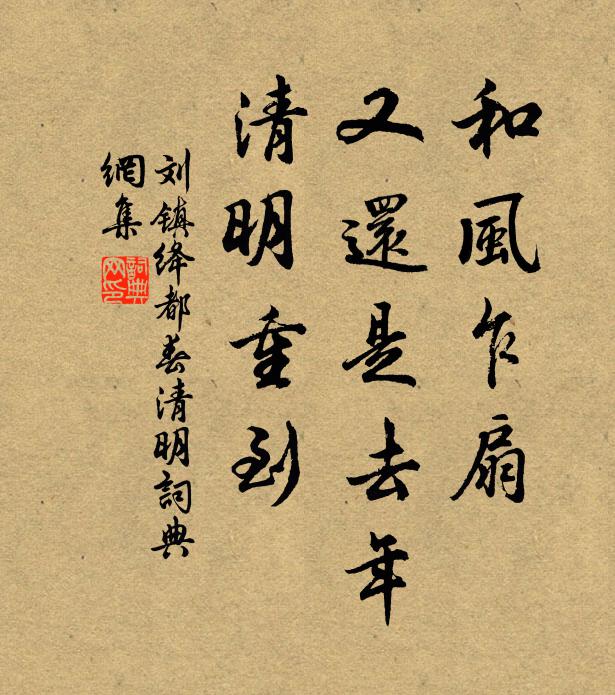 和風乍扇
又還是去年
清明重到
刘镇绛都春清明詞典
網集
詞典
网印